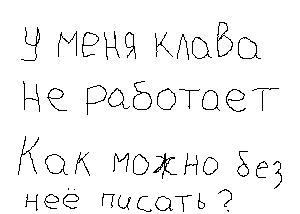 У меня клава
не работает
Как можно без
неё писать?